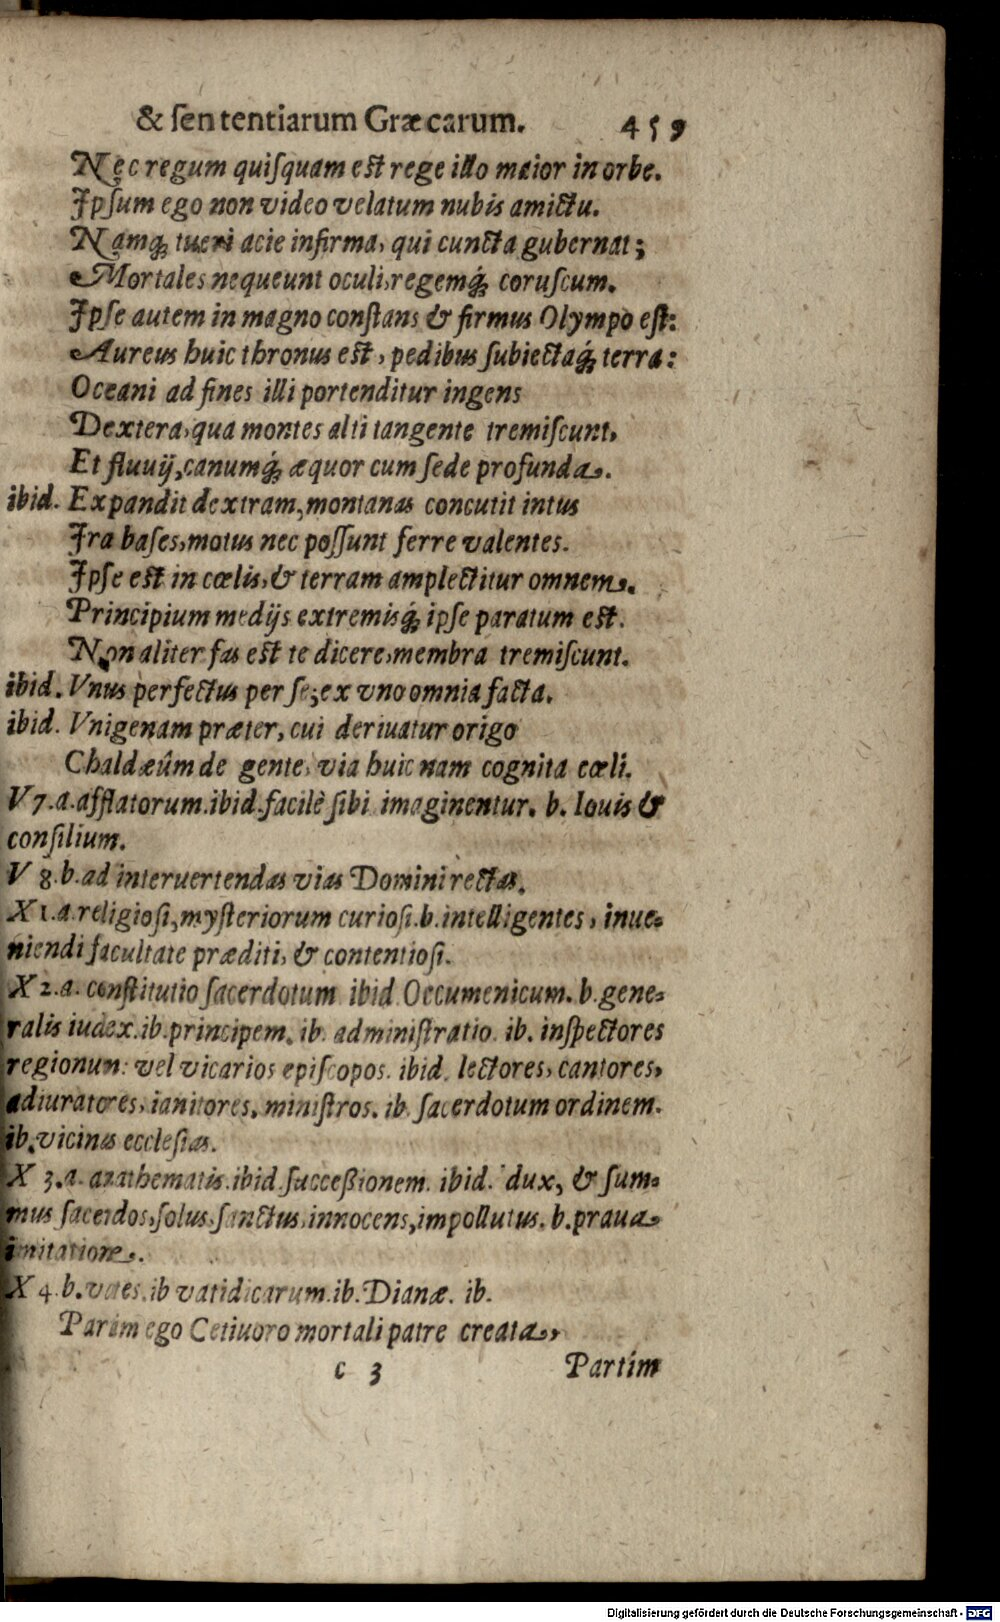 & ſententiarum Græcarum. 459
Nec regum quiſquam eſt rege illo maior in orbe.
Ipſum ego non video velatum nubis amictu.
Namq́; tueri acie infirma, qui cuncta gubernat;
Mortales nequeunt oculi, regemq́; coruſcum.
Ipſe autem in magno conſtans & firmus Olympo eſt:
Aureus huic thronus eſt, pedibus ſubiectaq́; terra:
Oceani ad fines illi portenditur ingens
Dextera, qua montes alti tangente tremiſcunt,
Et fluuij, canumq́; æquor cum ſede profunda.
ibid. Expandit dextram, montanas concutit intus
Ira baſes, motus nec poſſunt ferre valentes.
Ipſe eſt in cœlis, & terram amplectitur omnem.
Principium medijs extremisq́; ipſe paratum eſt.
Non aliter fas eſt te dicere, membra tremiſcunt.
ibid. Vnus perfectus per ſe; ex vno omnia facta.
ibid. Vnigenam præter, cui deriuatur origo
Chaldæûm de gente, via huic nam cognita cœli.
V 7. a. afflatorum. ibid. facilè ſibi imaginentur. b. Iouis &
conſilium.
V 8. b. ad interuertendas vias Domini rectas.
X 1. a. religioſi, myſteriorum curioſi. b. intelligentes, inue-
niendi facultate præditi, & contentioſi.
X 2. a. conſtitutio ſacerdotum ibid. Oecumenicum. b. gene-
ralis iudex. ib. principem. ib. adminiſtratio. ib. inſpectores
regionum: vel vicarios epiſcopos. ibid. lectores, cantores,
adiuratores, ianitores, miniſtros. ib. ſacerdotum ordinem.
ib. vicinas eccleſias.
X 3. a. anathematis. ibid. ſucceßionem. ibid. dux, & ſum-
mus ſacerdos, ſolus, ſanctus, innocens, impollutus. b. praua
imitatione.
X 4. b. vates. ib. vatidicarum. ib. Dianæ. ib.
Partim ego Cetiuoro mortali patre creata,
c 3 Partim
Digitalisierung gefördert durch die Deutsche Forschungsgemeinschaft - DFG